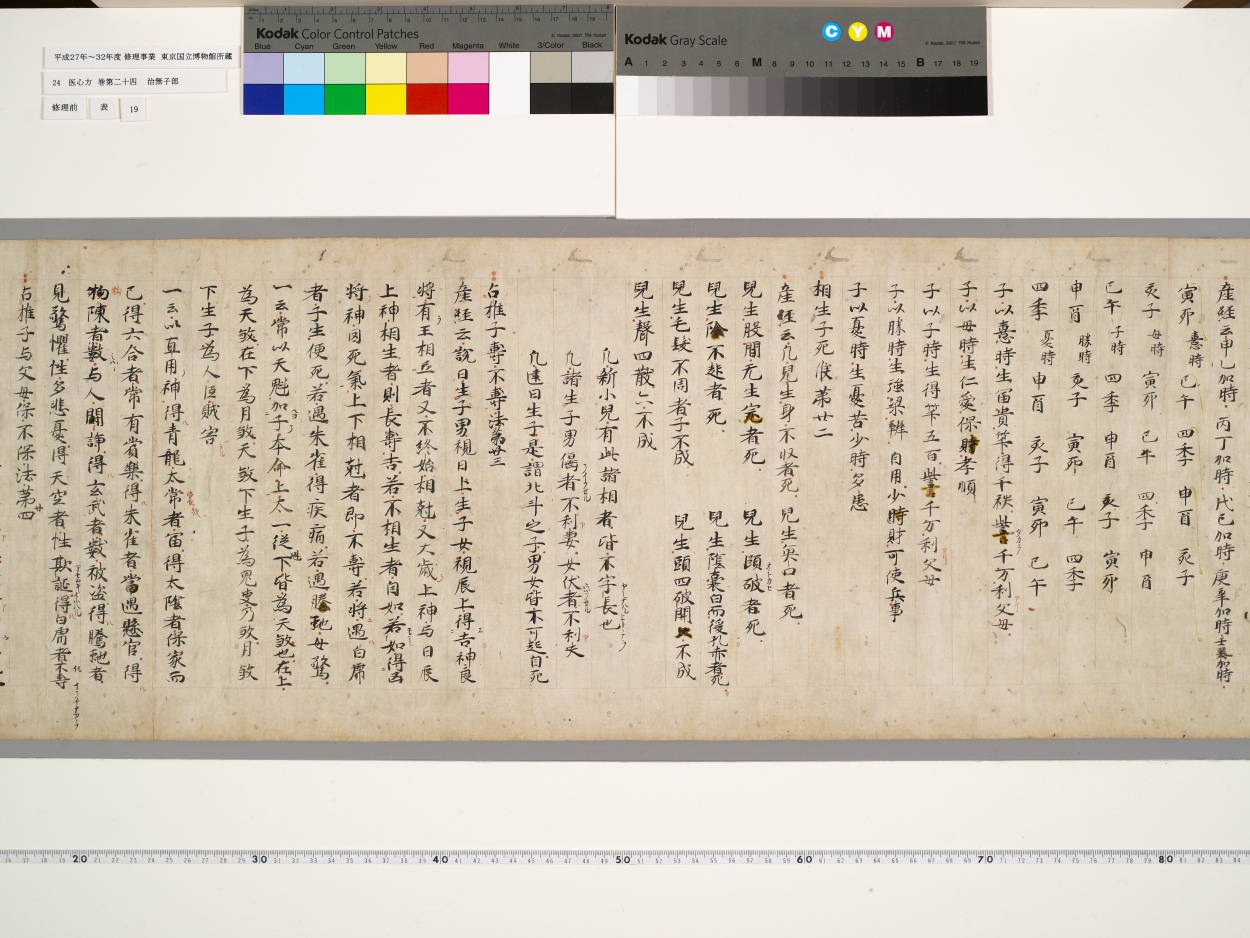 平成27年～32年度 修理事業 東京国立博物館所蔵
24 医心方 巻第二十四 治無子部
修理前 表 19
Kodak Color Control Patches
Blue Cyan Green Yellow Red Magenta White 3/Color Black
Kodak Gray Scale
C Y M
A 1 2 3 4 5 6 M 8 9 10 11 12 13 14 15 B 17 18 19
産経云甲乙加時丙丁加時戊己加時庚辛加時壬癸加時
寅卯 憙時 巳午 四季 申酉 亥子
亥子 母時 寅卯 巳午 四季 申酉
巳午 子時 四季 申酉 亥子 寅卯
申酉 勝時 亥子 寅卯 巳午 四季
四季 憂時 申酉 亥子 寅卯 巳午
子以憙時生富貴 得千秩 千万利父母
子以母時生仁愛保財孝順
子以子時生得 五百 千万利父母
子以勝時生強梁辨自用少時財可使兵事
子以憂時生憂苦少時多患
相生子死候第廿二
産経云凡兒生身不収者死 兒生魚口者死
兒生股間无生宍者死 兒生頭破者死
兒生陰不起者死 兒生陰嚢白而後孔赤者死
兒生毛髪不周者子不成 兒生頭四破開 不成
兒生聲四散 不成
凡新小兒有此諸相者皆不字長也
凡諸生子男偃者不利妻女伏者不利夫
凡逺日生子是謂北斗之子男女皆不可起自死
占推子壽不壽法第廿三
産経云説曰生子男視日上生子女視辰上得吉神良
将有王相立者又不終始相尅又大歳上神与日辰
上神相生者則長壽吉若不相生者自如若如得凶
将神囚死氣上下相尅者即不壽若将遇白席
者子生便死若遇朱雀得疾病若遇騰虵母驚
一云常以天魁加子本命上太一従下皆為天煞也在上
為天煞在下為月煞天煞下生子為鬼吏 煞月煞
下生子為人 賊害
一云以直用神得青龍太常者富得太陰者保家而
已得六合者常有賞樂得朱雀者當遇縣官得
狗陳者數与人闘諍得玄武者數被盗得騰虵者
見驚懼性多悲憂得天空者性欺誕得白席者不壽
占推子与父母保不保法第四
20 30 40 50 60 70 80